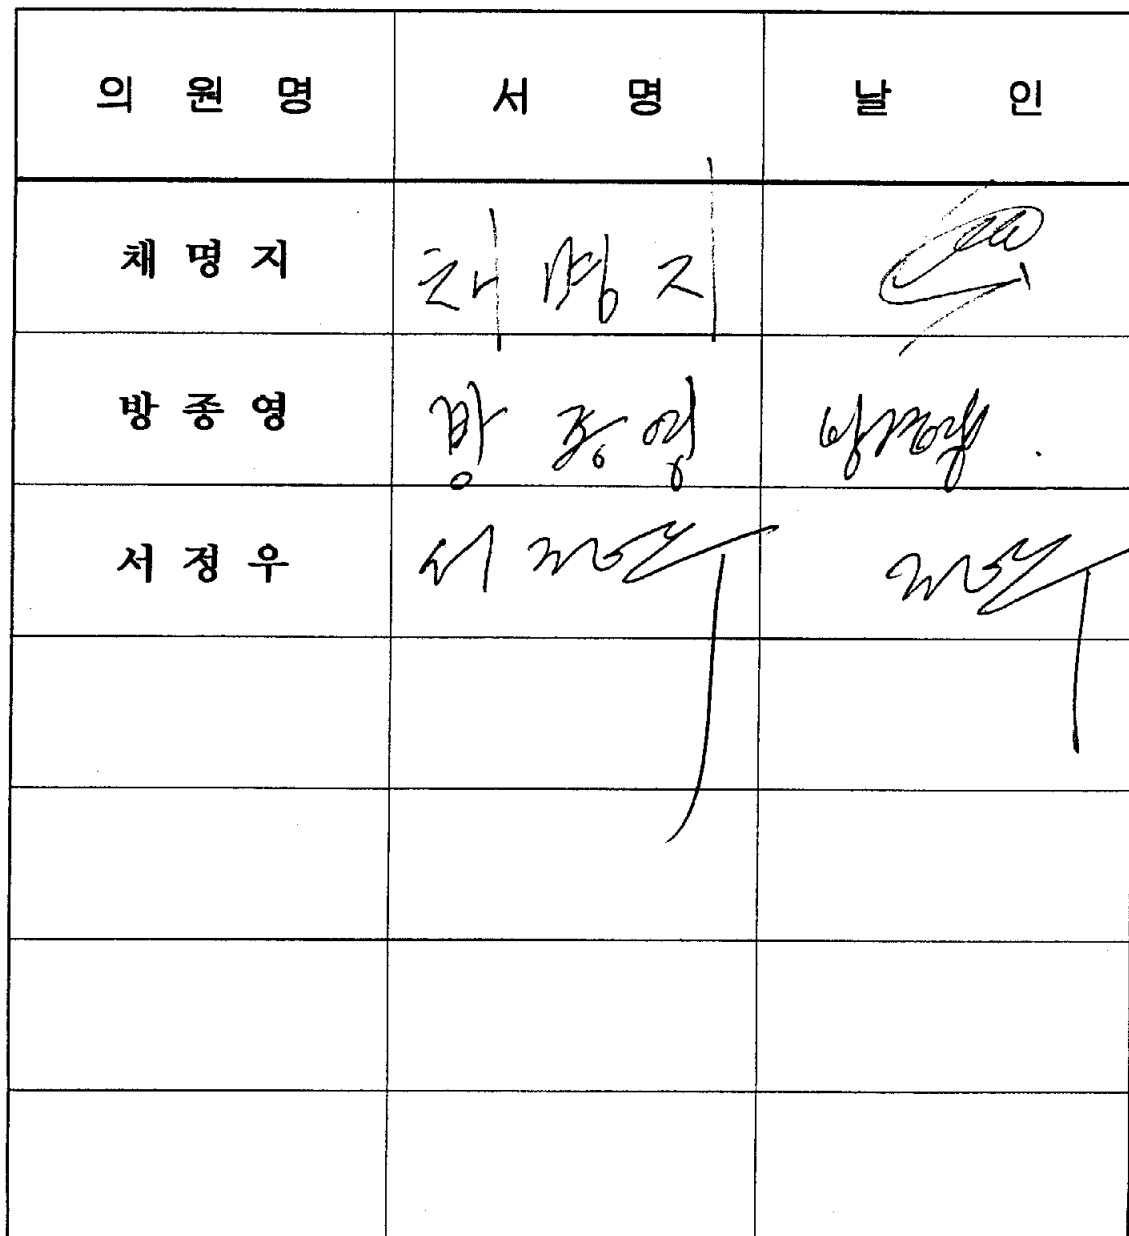 의 원 명 서 명 날 인
채 명 지 채 명 지
방 종 영 방 종 영
서 정 우 서 정 우